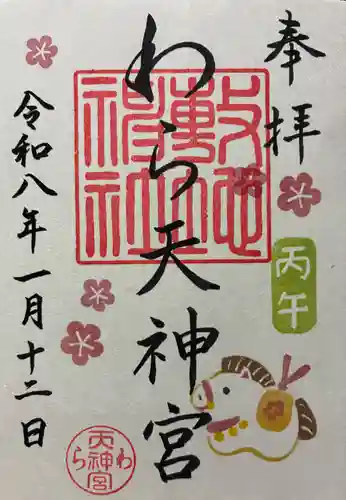 奉拝
丙午
わら天神宮
敷地神社
令和八年一月十二日
わら天神宮